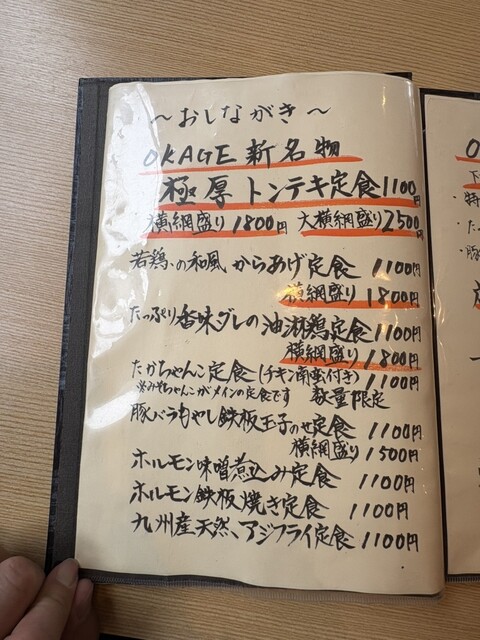 〜おしながき〜
OKAGE新名物
極厚トンテキ定食1100円
横綱盛り1800円 大横綱盛り2500円
若鶏の和風からあげ定食 1100円
横綱盛り1800円
たっぷり香味ダレの油淋鶏定食1100円
横綱盛り1800円
たかちゃんこ定食(チキン南蛮付き)1100円
※みそちゃんこがメインの定食です 数量限定
豚バラもやし鉄板玉子のせ定食 1100円
横綱盛り1500円
ホルモン味噌煮込み定食 1100円
ホルモン鉄板焼き定食 1100円
九州産天然、アジフライ定食1100円